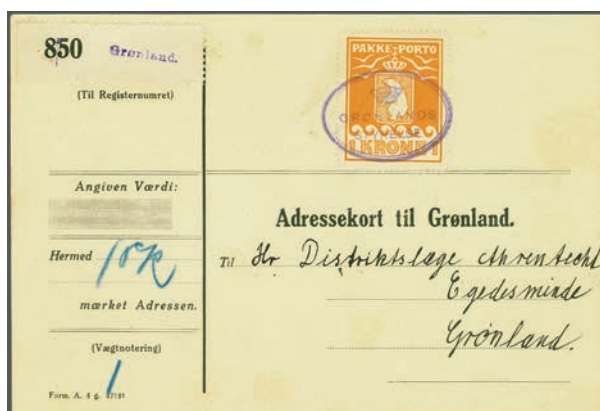 850 Grønland.
(Til Registernumret)
Angiven Værdi:
Hermed 1 pk
mærket Adressen.
(Vægtnotering)
1
Form. A. 4 g.
PAKKE-PORTO
GRØNLANDS
STYRELSE
1 KRONE 1
Adressekort til Grønland.
Til Hr Distriktslæge
Egedesminde
Grønland.